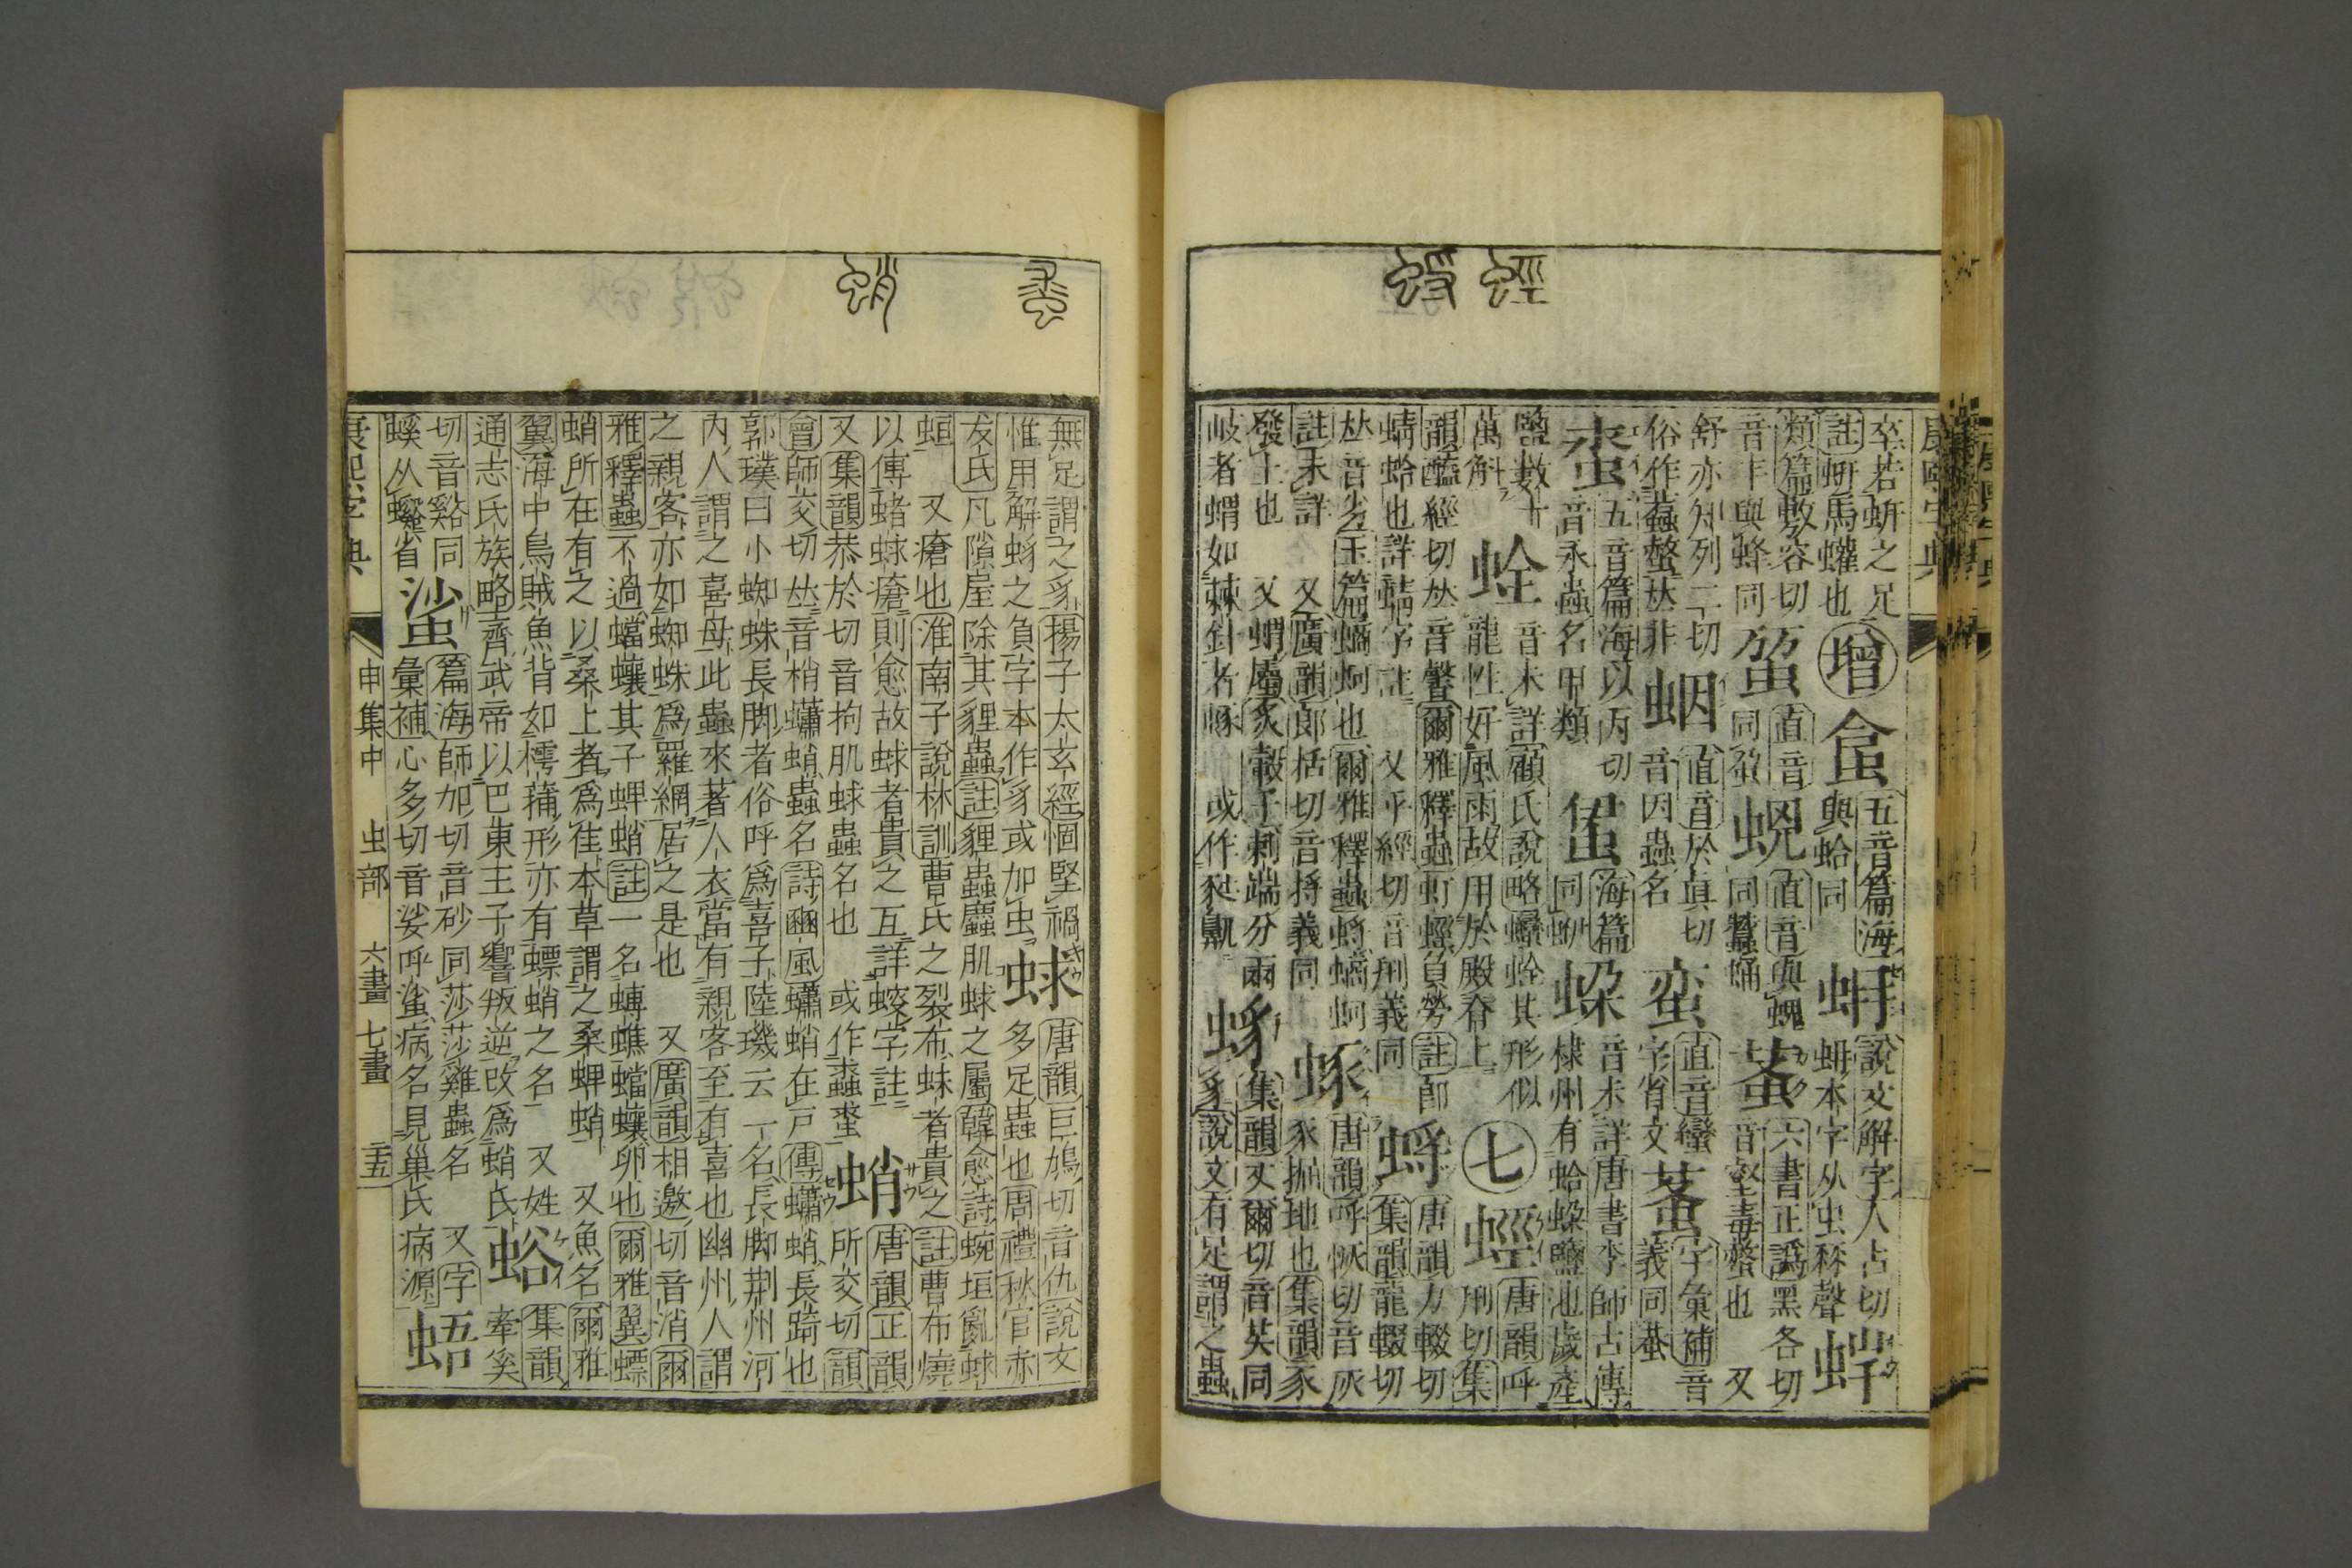 康熙字典
卒若蚈之足註蚈馬蠸也 增 五音篇海與蛤同 說文解字人占切蚈本字从虫 聲 蛘
類篇敷容切音丰與蜂同 直音同 蛻 直音與螝同蠶蛹 六書正譌黑各切音壑毒螫也 又
舒亦知列二切俗作蠚螫𠀤非 直音於眞切音因蟲名 蛮 直音蠻字省文 字彙補音義同
五音篇海以丙切音永蟲名甲類 海篇同蚎 音未詳唐書李師古傳棣州有蛤 鹽池歲產
鹽數十萬斛 蛫 音未詳顧氏說略 其形似龍性好風雨故用於殿脊上 七 蛵 唐韻呼刑切集
韻醯經切𠀤音馨爾雅釋蟲虰蛵負勞註卽蜻蛉也詳蜻字註 又乎經切音刑義同 蛶 唐韻力輟切集韻龍輟切
𠀤音劣玉篇螪蚵也爾雅釋蟲蛶螪蚵註未詳 又廣韻郎括切音捋義同 唐韻呼恢切音灰豕掘地也集韻豕
發土也 又蝟屬豕 子刺端分兩岐者蝟如棘針者 或作 集韻丈爾切音 同豸說文有足謂之蟲
無足謂之豸揚子太玄經 堅禍惟用解 之貞字本作豸或加虫 蛷 唐韻巨鳩切音仇說文多足蟲也周禮秋官赤
犮氏凡隙屋除其貍蟲註貍蟲 肌蛷之屬韓愈詩蜿垣亂蛷 又瘡也淮南子說林訓曹氏之裂布蛷者貴之註曹布燒
以傅 蛷瘡則愈故蛷者貴之互詳 字註 又集韻恭於切音拘肌蛷蟲名也 或作 蛗 蛸 唐韻正韻所交切韻
會師交切𠀤音梢蠨蛸蟲名詩豳風蠨蛸在戶傳蠨蛸長踦也郭璞曰小蜘蛛長腳者俗呼爲喜子陸璣云一名長腳荆州河
內人謂之喜母此蟲來著人衣當有親客至有喜也幽州人謂之親客亦如蜘蛛爲羅網居之是也 又廣韻相邀切音消爾
雅釋蟲不過蟷蠰其子蜱蛸註一名 蟷蠰卵也爾雅翼螵蛸所在有之以桑上者爲佳本草謂之桑蜱蛸 又魚名爾雅
翼海中烏賊魚背如樗蒱形亦有螵蛸之名 又姓通志氏族略齊武帝以巴東王子響叛逆改爲蛸氏 蛒 集韻牽奚
切音谿同螇从蠏省 𧋊 篇海師加切音砂同莎莎雞蟲名 又字彙補心多切音娑呼𧋊病名見巢氏病源 蜈
康熙字典 申集中 虫部 六畫 七畫 三五